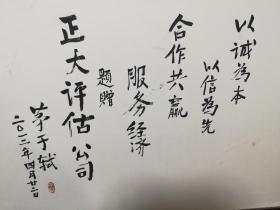 以诚為本
以信為先
合作共赢
服务经济
题赠
正大评估公司
茅于轼
二〇一二年四月廿二日